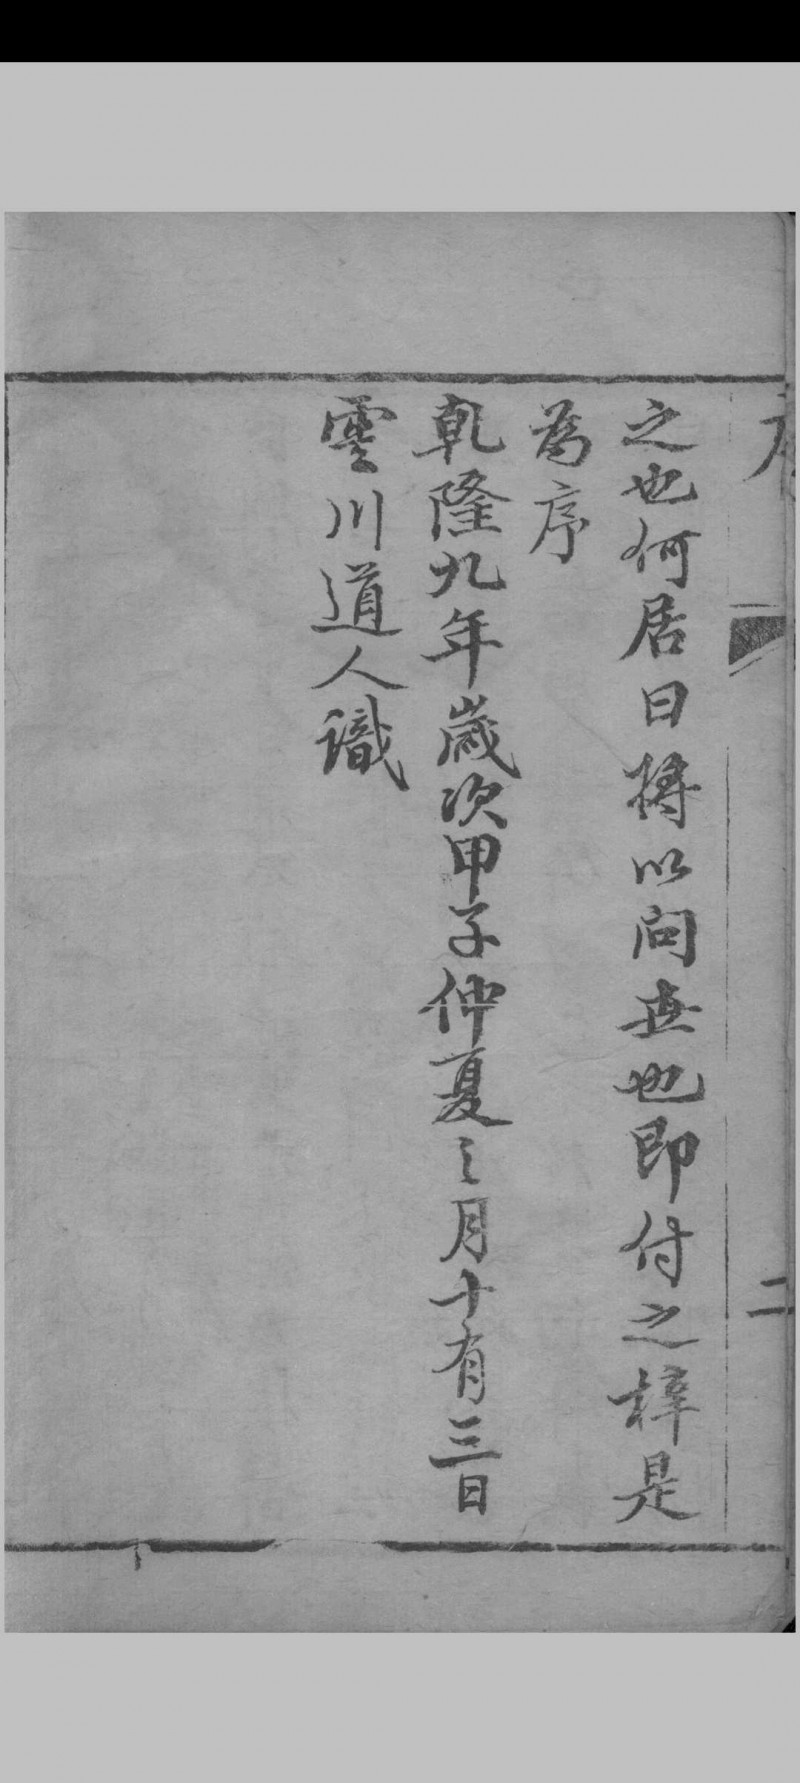 序
二
之也何居曰將以問世也即付之梓是
為序
乾隆九年歲次甲子仲夏之月十有三日
雲川道人識